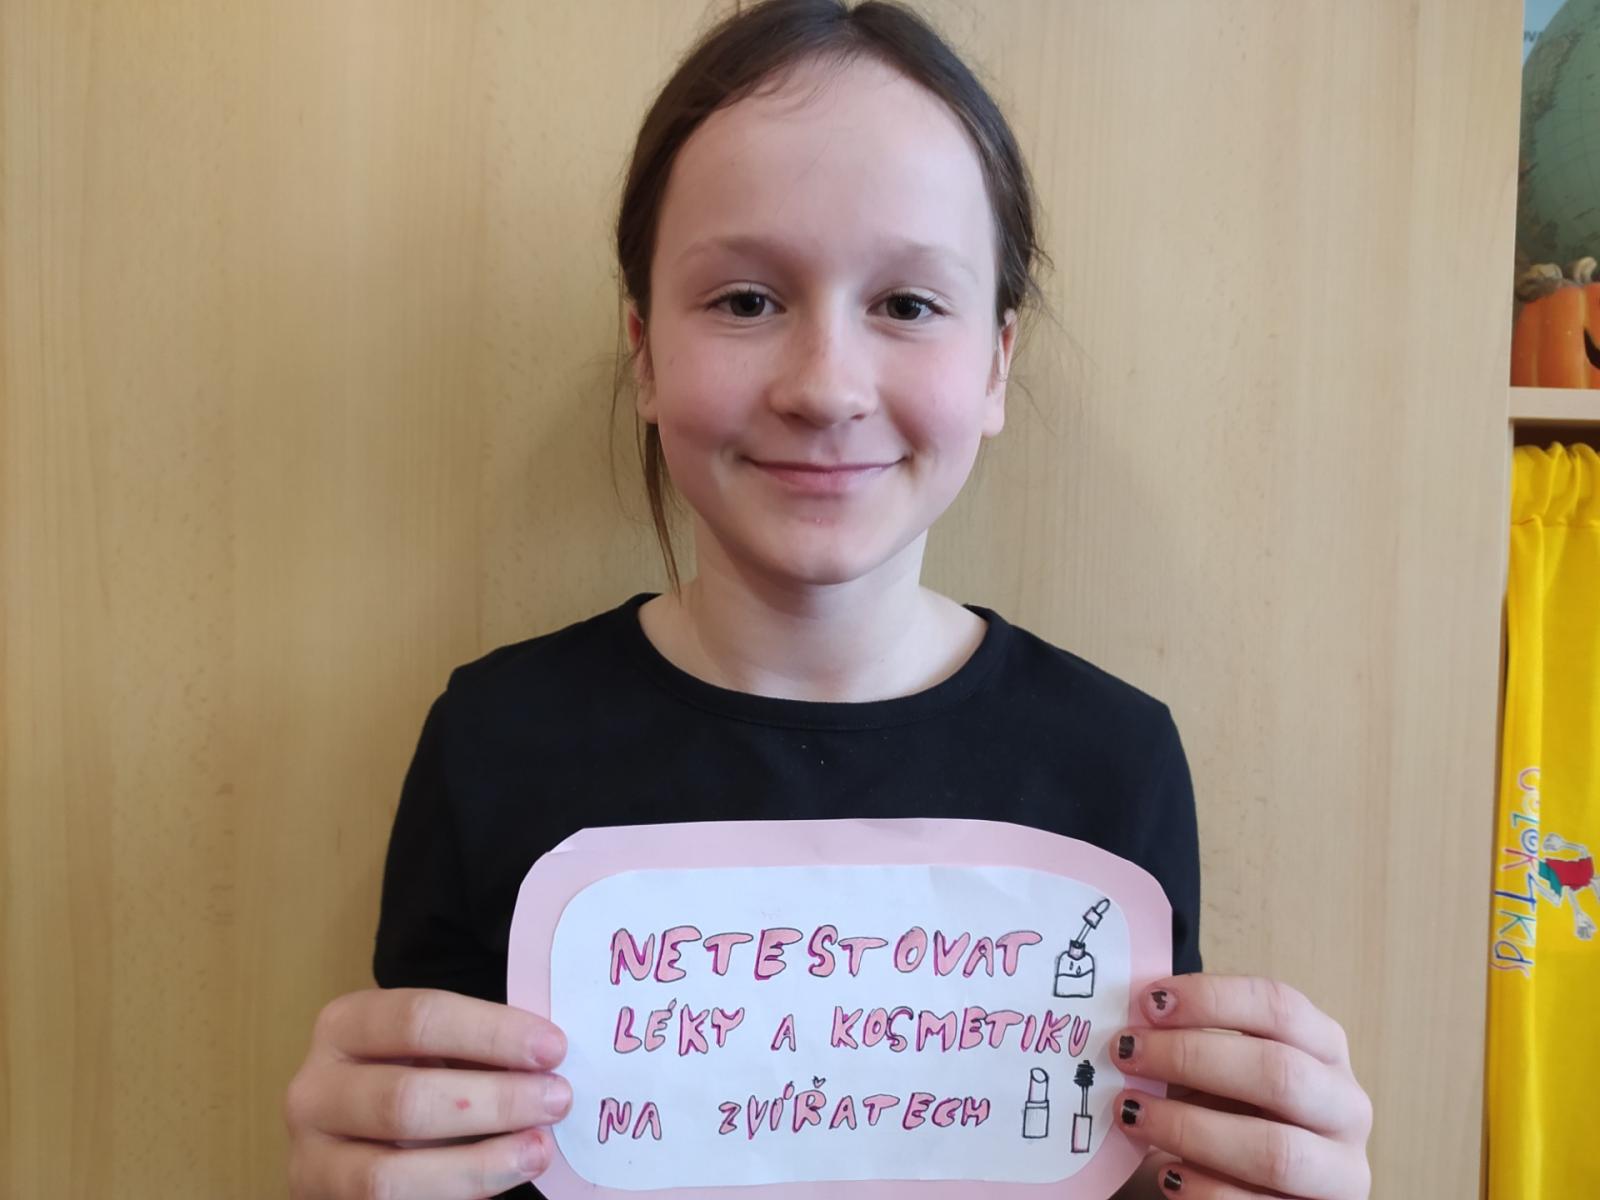 NETESTOVAT
LÉKY A KOSMETIKU
NA ZVÍŘATECH